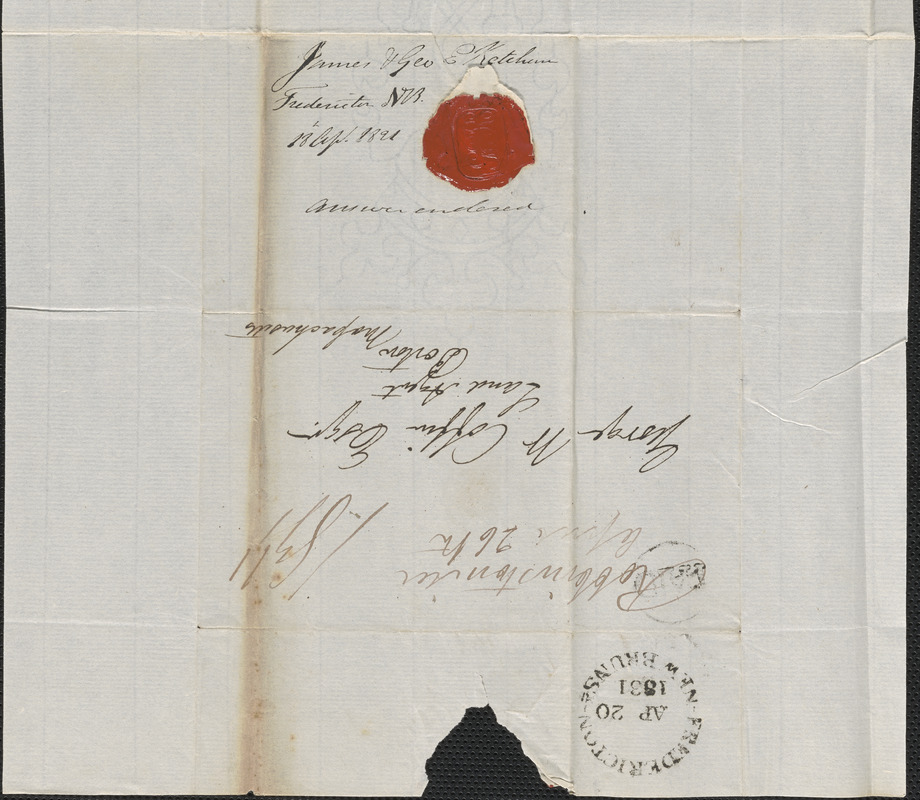 James & Geo E Ketchum
Fredericton NB.
18 Apl. 1831
answer endorsed
George W Coffin Esqr.
Land Agent
Boston
Massachusetts
Robbinstown Me
April 26th
FREDERICTON - NEW BRUNSK
AP 20
1831